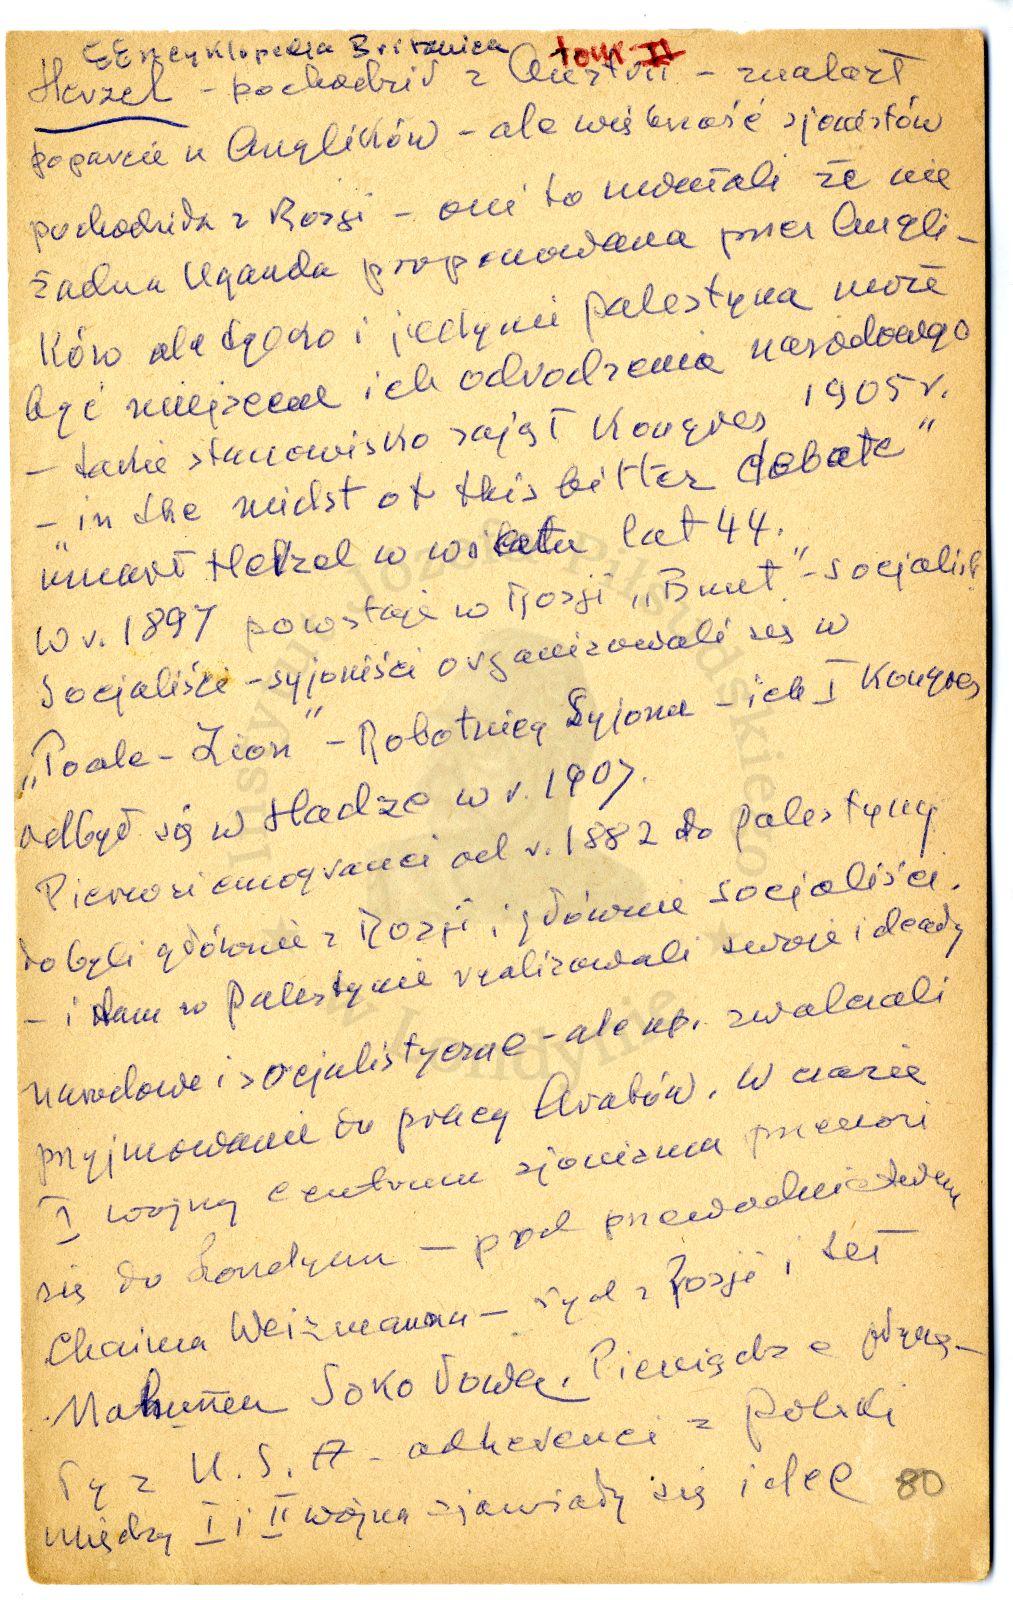 EEncyklopedia Britanica tom II
Herzel - pochodził z Austrii - znalazł
poparcie u Anglików - ale większość sjonistów
pochodziła z Rosji - oni to uważali że nie
żadna Uganda proponowana przez Angli-
ków ale tylko i jedynie Palestyna może
być miejscem ich odrodzenia narodowego
- takie stanowisko zajął Kongres 1905 r.
- "in the midst of this bitter debate"
umarł Herzel w wieku lat 44.
W r. 1897 powstaje w Rosji "Bunt" - socjaliści
Socjaliści - syjoniści organizowali się w
"Poale - Zion" - Robotnicy Syjonu - ich I Kongres
odbył się w Hadze w r. 1907.
Pierwsi emigranci od r. 1882 do Palestyny
to byli głównie z Rosji i głównie socjaliści.
- i tam w Palestynie realizowali swoje ideały
narodowe i socjalistyczne - ale np. zwalczali
przyjmowanie do pracy Arabów. W czasie
I wojny centrum sjonizmu przenosi
się do Londynu - pod przewodnictwem
Chaima Weizmanna - żyd z Rosji i też
Nahuma Sokołowa. Pieniądze płynę-
ły z U.S.A - adherenci z Polski
między I i II wojną zjawiały się idee 80
Instytut Józefa Piłsudskiego
w Londynie